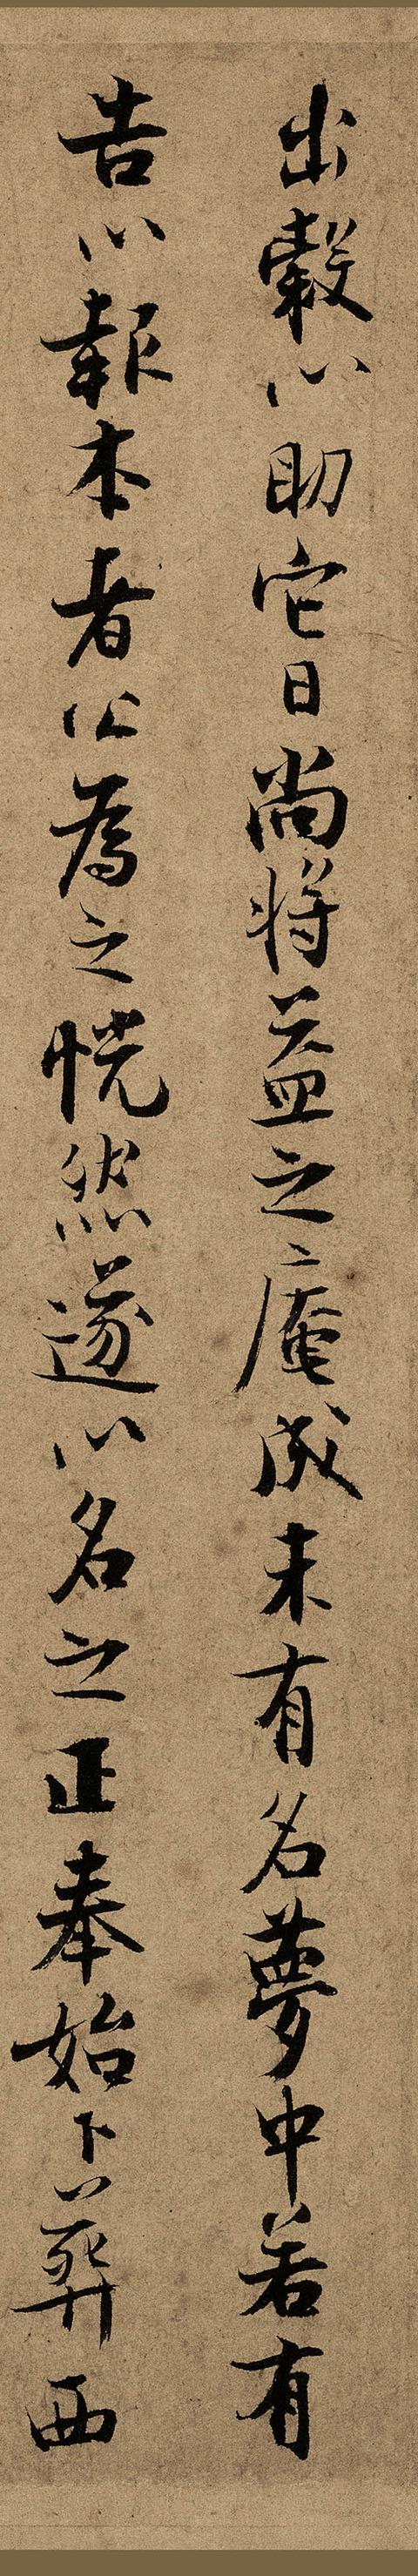 出穀以助它日尚将益之庵成未有名夢中若有
告以報本者公為之恍然遂以名之正奉始卜葬西